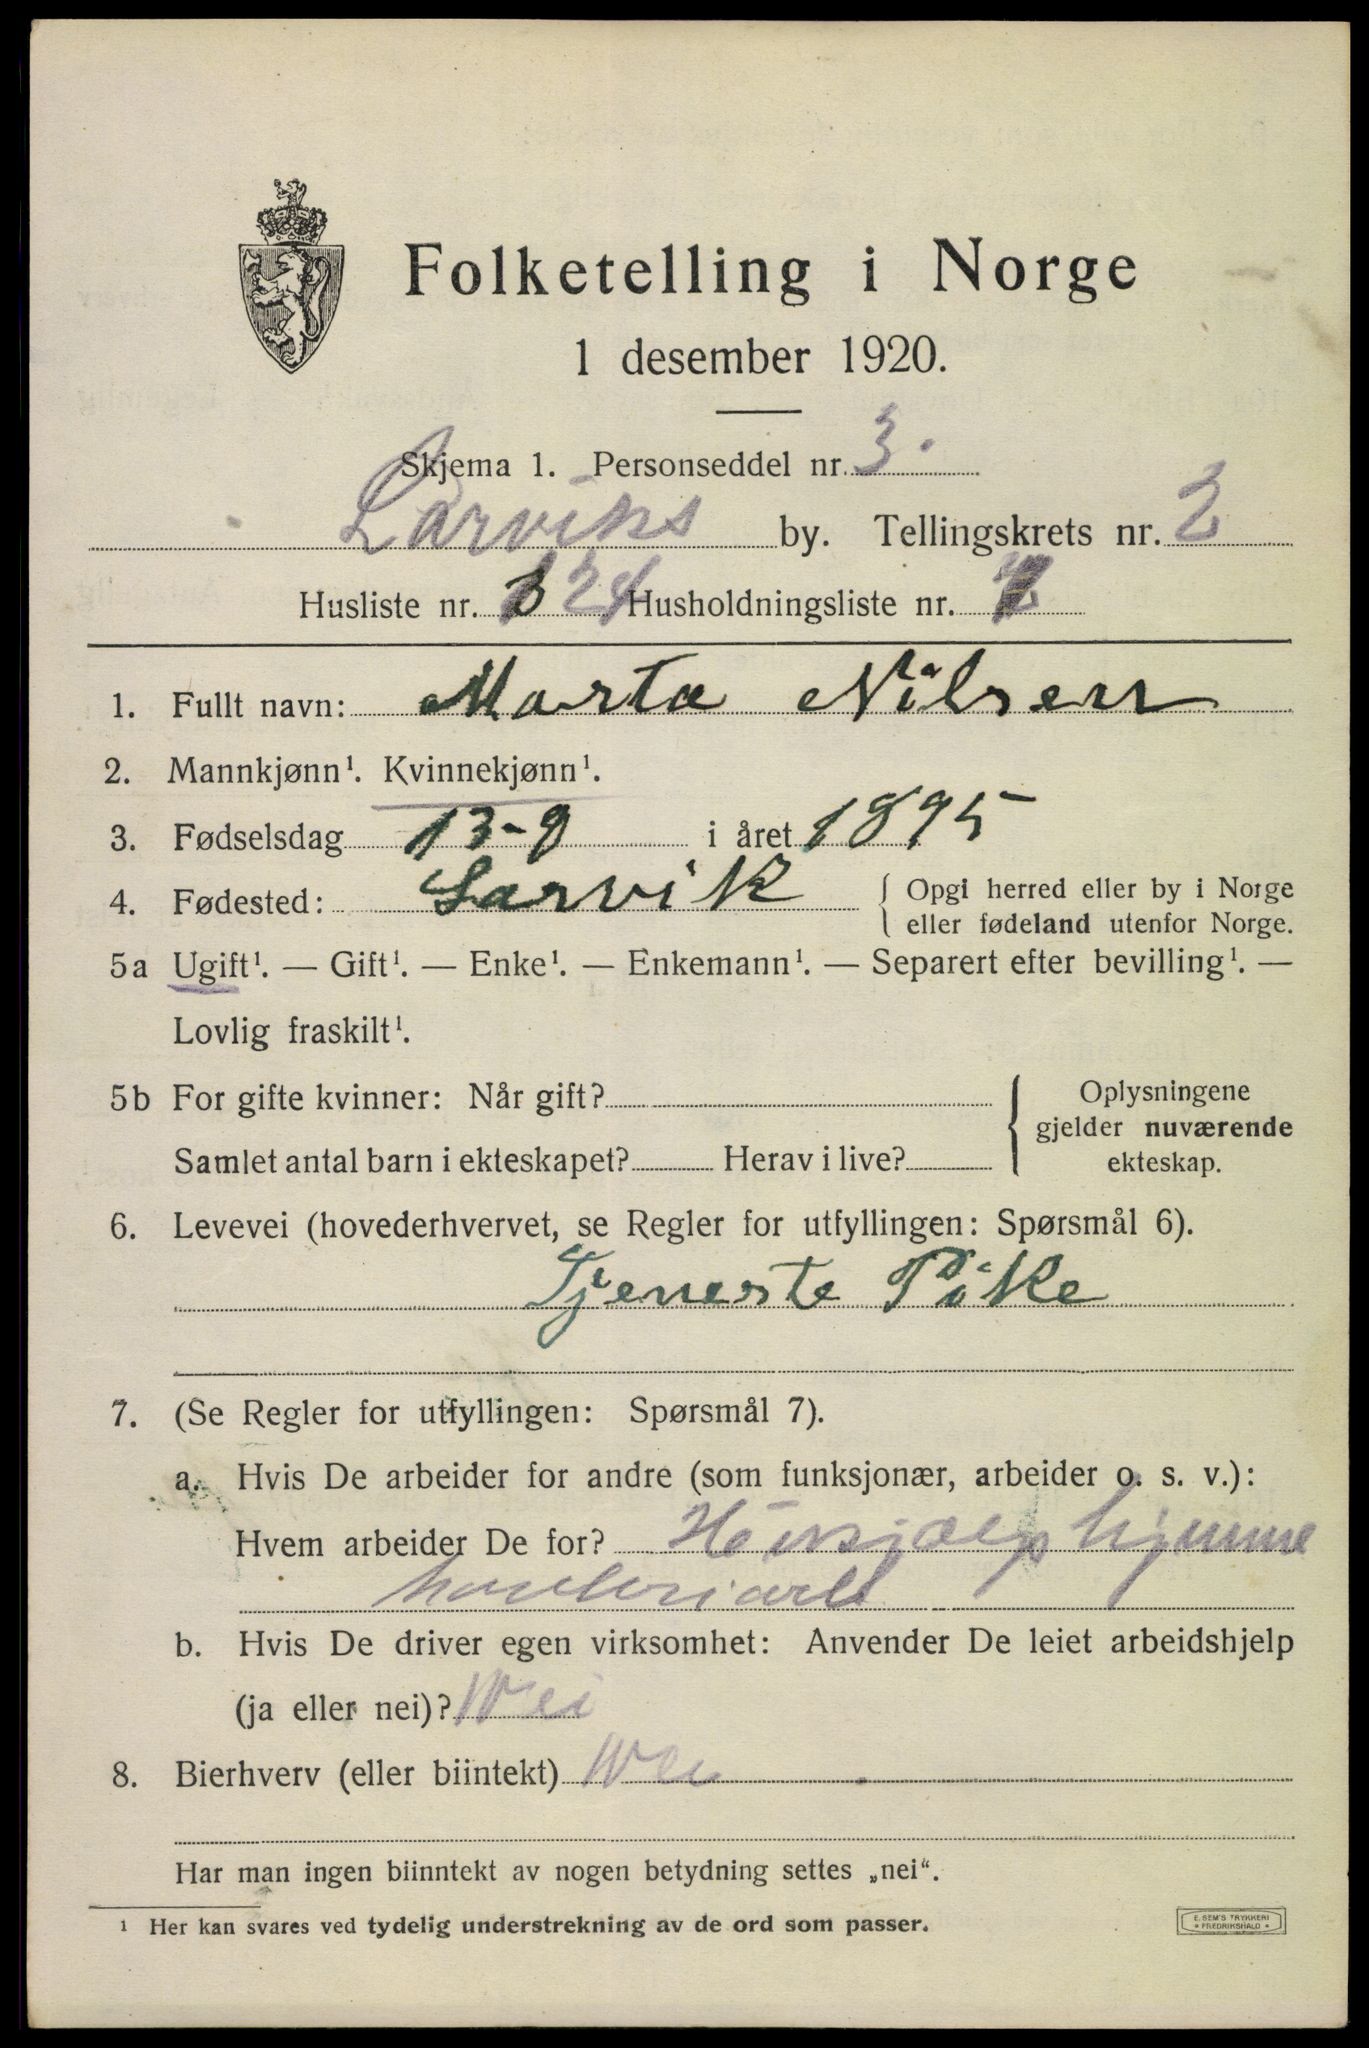 Folketelling i Norge
1 desember 1920.
Skjema 1. Personseddel nr. 3.
Larviks by. Tellingskrets nr. 2
Husliste nr. 24 Husholdningsliste nr.
1. Fullt navn: Marta Nilsen
2. Mannkjønn¹. Kvinnekjønn¹.
3. Fødselsdag 13-9 i året 1895
4. Fødested: Larvik { Opgi herred eller by i Norge
eller fødeland utenfor Norge.
5a Ugift¹. — Gift¹. — Enke¹. — Enkemann¹. — Separert efter bevilling¹. —
Lovlig fraskilt¹.
5b For gifte kvinner: Når gift? { Oplysningene
gjelder nuværende
Samlet antal barn i ekteskapet? Herav i live? ekteskap.
6. Levevei (hovederhvervet, se Regler for utfyllingen: Spørsmål 6).
Tjeneste Pike
7. (Se Regler for utfyllingen: Spørsmål 7).
a. Hvis De arbeider for andre (som funksjonær, arbeider o. s. v.):
Hvem arbeider De for?
b. Hvis De driver egen virksomhet: Anvender De leiet arbeidshjelp
(ja eller nei)? Nei
8. Bierhverv (eller biintekt) Nei
Har man ingen biinntekt av nogen betydning settes „nei“.
¹ Her kan svares ved tydelig understrekning av de ord som passer.
E. SEM'S TRYKKERI
* FREDRIKSHALD *